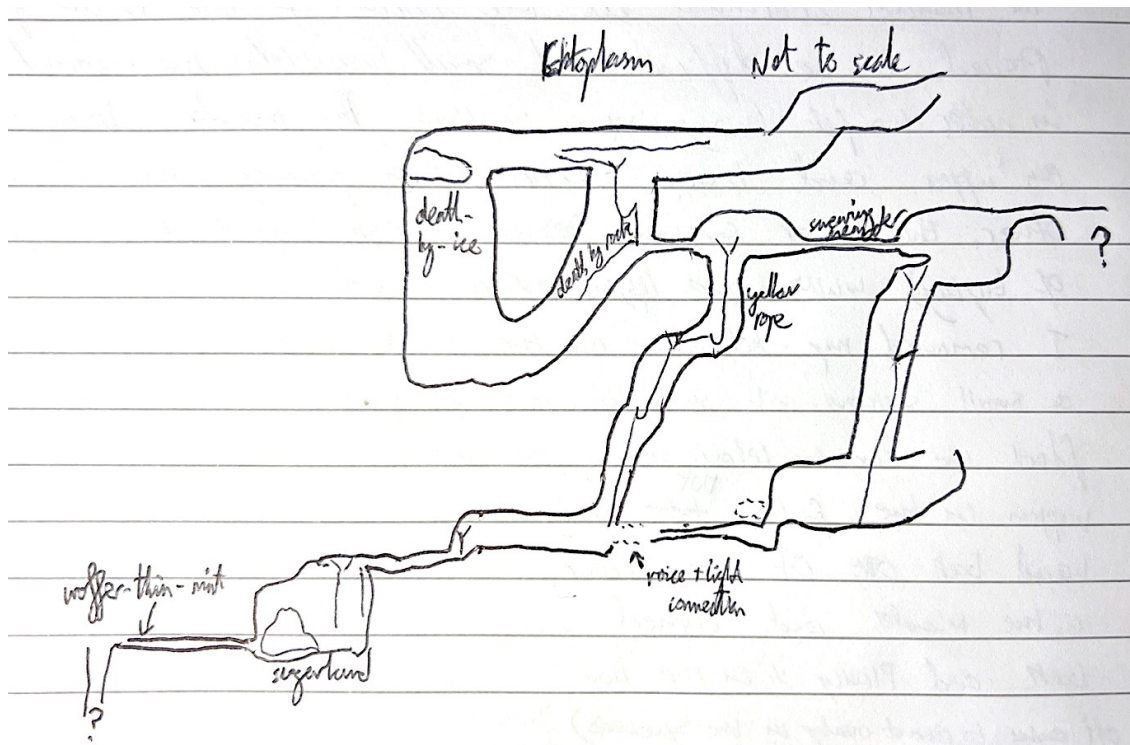 Ektoplasm
Not to scale
death-
by-ice
death by rock
swearing
?
yellow
rope
voice + light
connection
waffer-thin-mint
sugarland
?